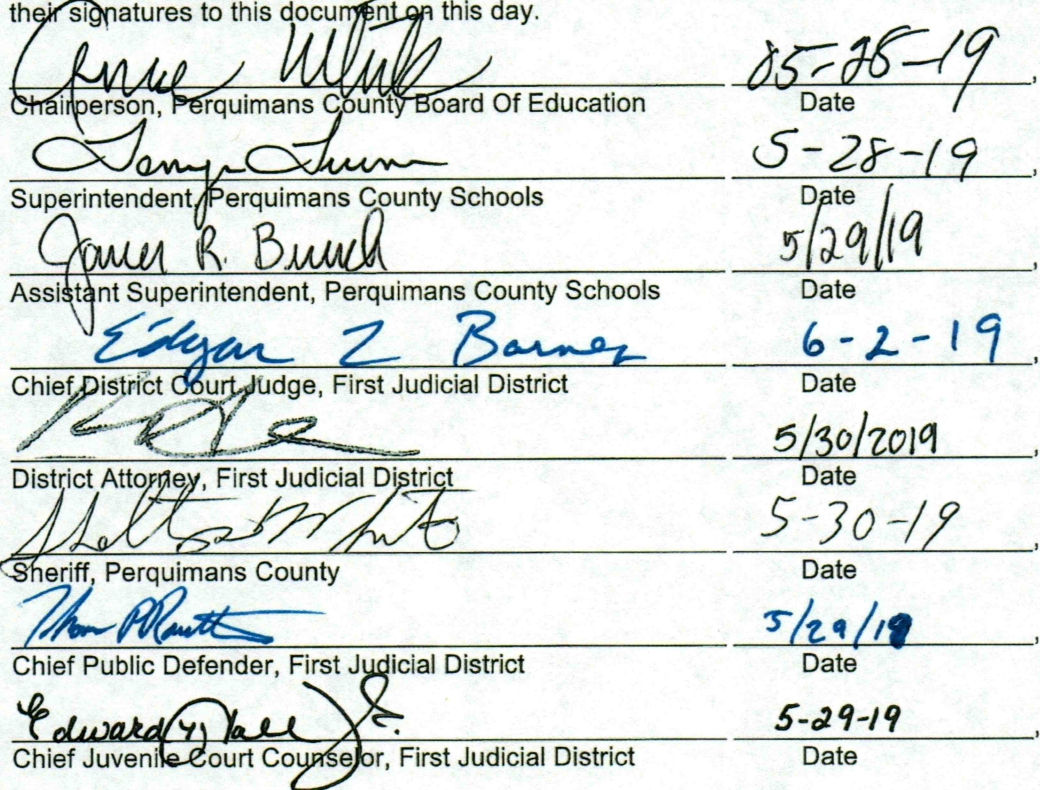 their signatures to this document on this day.
White 05-28-19,
Chairperson, Perquimans County Board Of Education Date
5-28-19,
Superintendent, Perquimans County Schools Date
James R. Bunch 5/29/19,
Assistant Superintendent, Perquimans County Schools Date
Edgar L Barnes 6-2-19,
Chief District Court Judge, First Judicial District Date
5/30/2019,
District Attorney, First Judicial District Date
Shelton White 5-30-19,
Sheriff, Perquimans County Date
5/29/19,
Chief Public Defender, First Judicial District Date
Edward Hall Jr. 5-29-19,
Chief Juvenile Court Counselor, First Judicial District Date